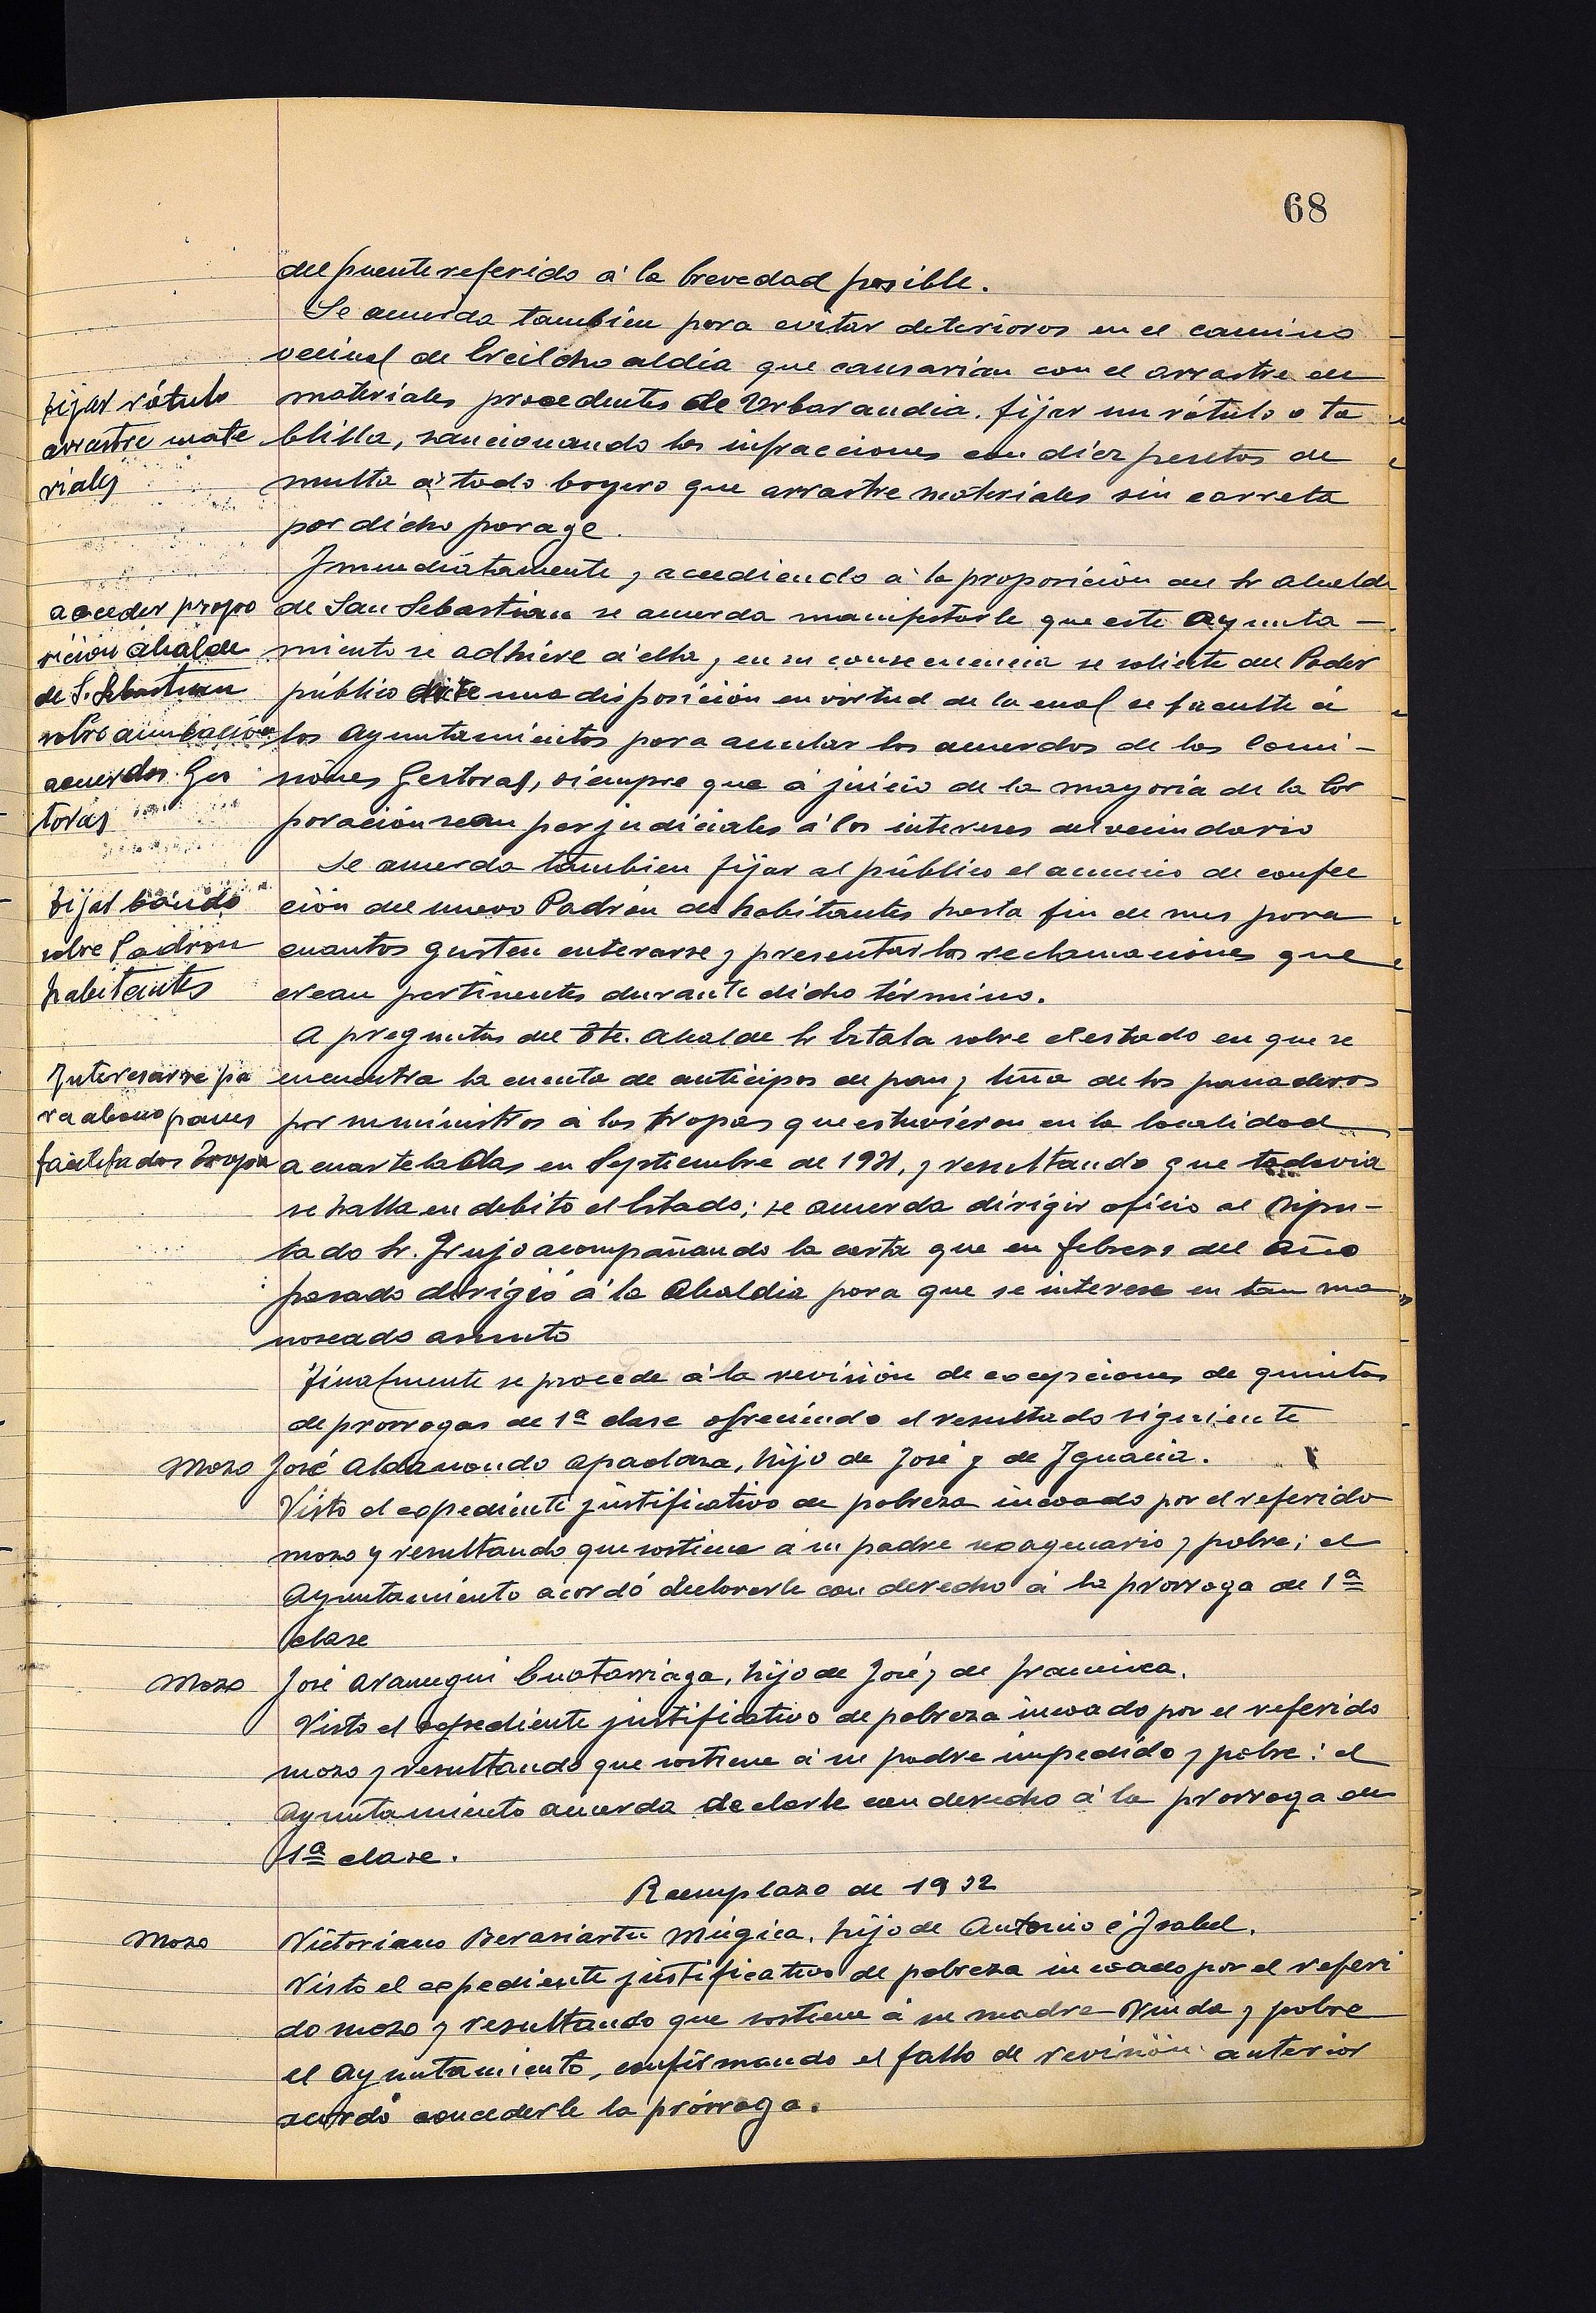 68
del puente referido á la brevedad posible.
Se acuerda tambien para evitar deterioros en el camino
vecinal de Ercilchoaldia que causarian con el arrastre de
Fijar rótulo
arrastre mate
riales
materiales procedentes de Urbarandia. fijar un rótulo o ta
blilla, sancionando las infracciones con diez pesetas de
multa á todo boyero que arrastre materiales sin carreta
por dicho parage.
Inmediatamente y accediendo á la proposición del Sr Alcalde
acceder propo
sición Alcalde
de S. Sebastian
sobre anulación
acuerdos Ges
toras
de San Sebastian se acuerda manifestarle que este Ayunta-
miento se adhiere á ella, en su consecuencia se solicite del Poder
público dicte una disposición en virtud de la cual se faculte á
los Ayuntamientos para anular los acuerdos de las Comi-
siones Gestoras, siempre que á juicio de la mayoria de la Cor
poración sean perjudiciales á los intereses del vecindario
Se acuerda tambien fijar al público el anuncio de confec
Fijar bando
sobre Padron
habitantes
ción del nuevo Padrón de habitantes hasta fin de mes para
cuantos gusten enterarse y presentar las reclamaciones que
crean pertinentes durante dicho término.
A preguntas del Tte. Alcalde Sr Estala sobre el estado en que se
Interesarse pa
ra abono panes
facilitados Tropa
encuentra la cuenta de anticipos de pan y leña de los panaderos
por suministros á las tropas que estuvieron en la localidad
acuarteladas en Septiembre de 1931, y resultando que todavia
se halla en debito el Estado; se acuerda dirigir oficio al Dipu-
tado Sr. Irujo acompañando la carta que en febrero del año
pasado dirigió á la Alcaldia para que se interese en tan ma
noseado asunto
Finalmente se procede á la revisión de excepciones de quintas
de prorrogas de 1ª clase ofreciendo el resultado siguiente
Mozo José Aldamondo Apaolaza, hijo de José y de Ignacia.
Visto el expediente justificativo de pobreza incoado por el referido
mozo y resultando que sostiene á su padre sexagenario y pobre; el
Ayuntamiento acordó declararle con derecho á la prorroga de 1ª
clase
Mozo José Aranegui Enatarriaga, hijo de José y de Francisca.
Visto el expediente justificativo de pobreza incoado por el referido
mozo y resultando que sostiene á su padre impedido y pobre: el
Ayuntamiento acuerda declarle con derecho á la prorroga de
1ª clase.
Reemplazo de 1932
Mozo Victoriano Berasiartu Mugica, hijo de Antonio é Isabel.
Visto el expediente justificativo de pobreza incoado por el referi
do mozo y resultando que sostiene á su madre Viuda y pobre
el Ayuntamiento, confirmando el fallo de revisión anterior
acordó concederle la prórroga.